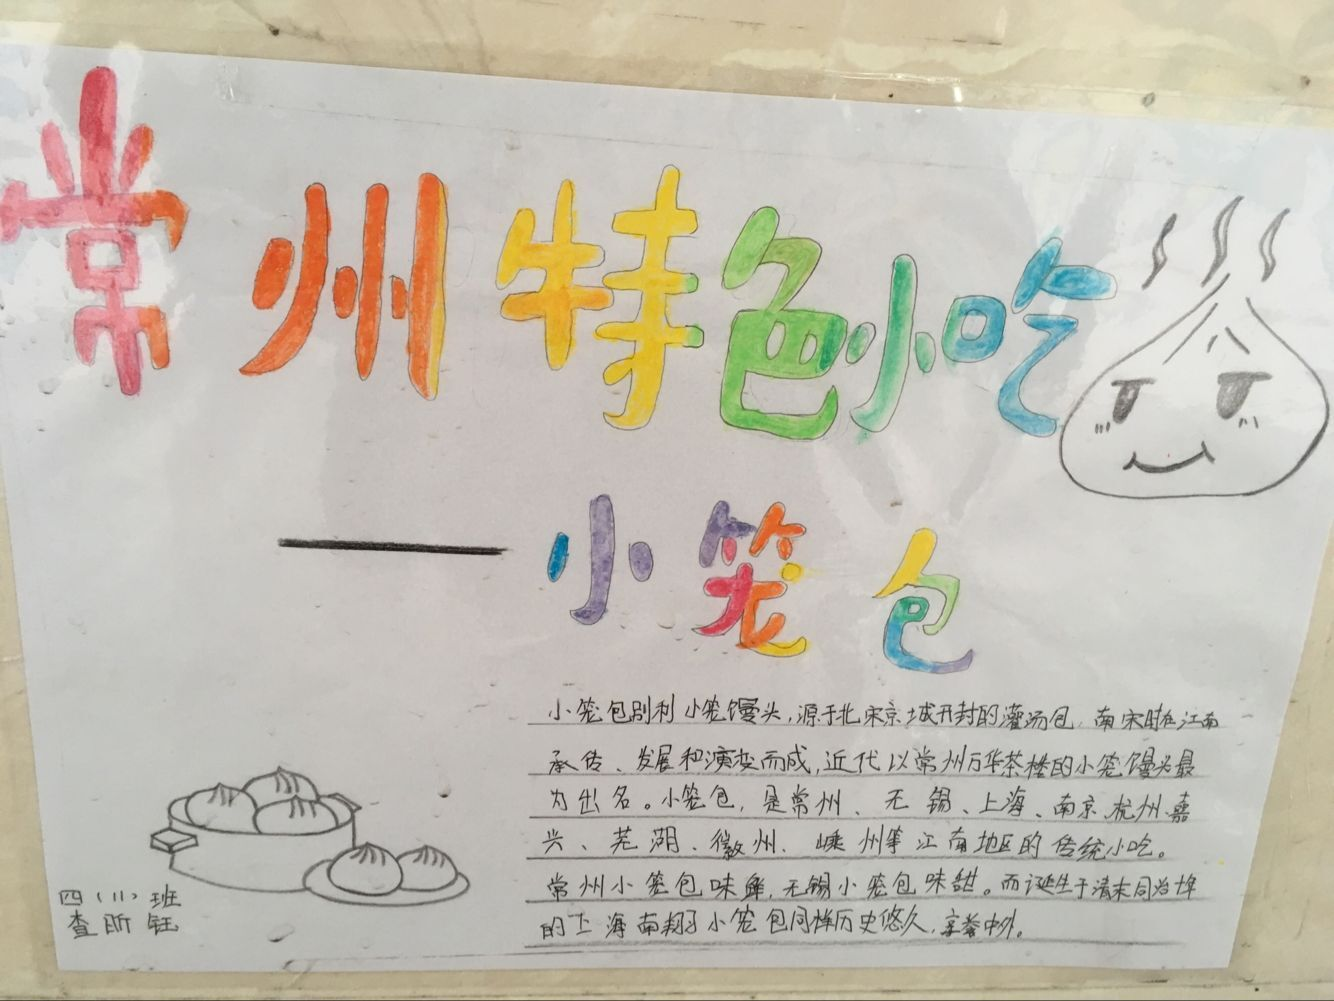 常州特色小吃
——小笼包
小笼包别利小笼馒头，源于北宋京城开封的灌汤包，南宋时在江南
承传、发展和演变而成，近代以常州万华茶楼的小笼馒头最
为出名。小笼包，是常州、无锡、上海、南京、杭州、嘉
兴、芜湖、徽州、嵊州等江南地区的传统小吃。
常州小笼包味鲜，无锡小笼包味甜。而诞生于清末同治年
的上海南翔小笼包同样历史悠久，享誉中外。
四（11）班
查昕钰